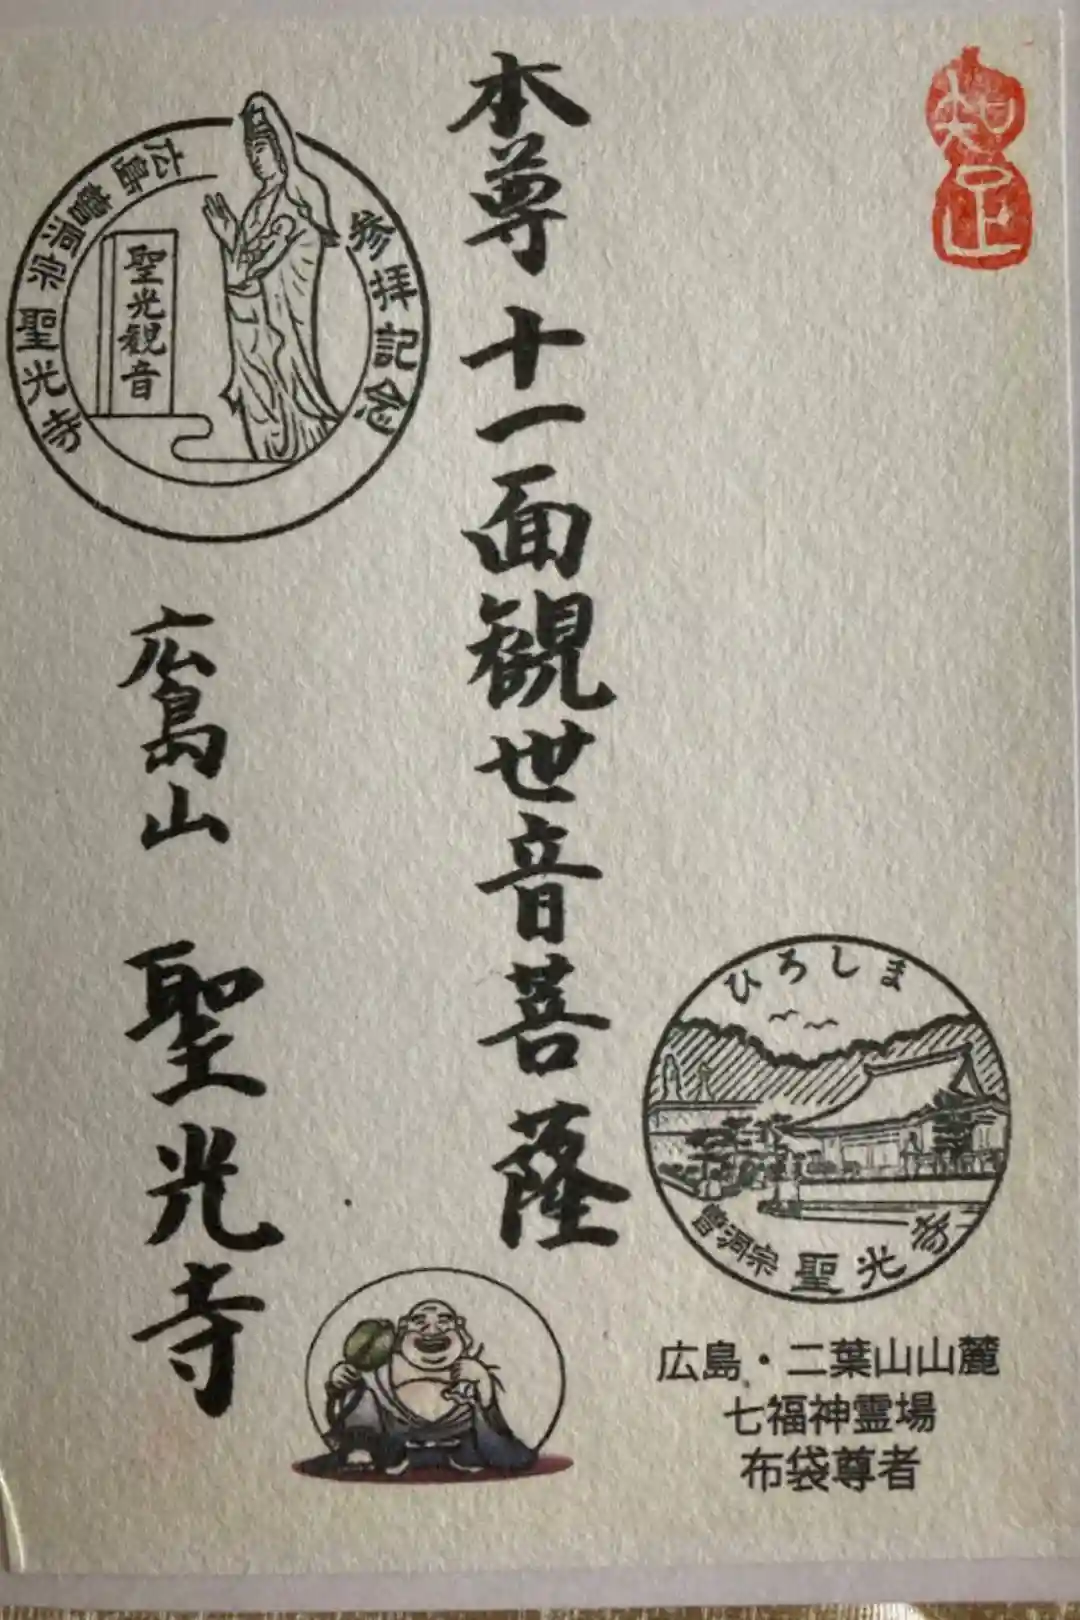 知足
本尊 十一面観世音菩薩
広島山 聖光寺
広島曹洞宗 聖光寺
参拝記念
聖光観音
ひろしま
曹洞宗 聖光寺
広島・二葉山山麓
七福神霊場
布袋尊者